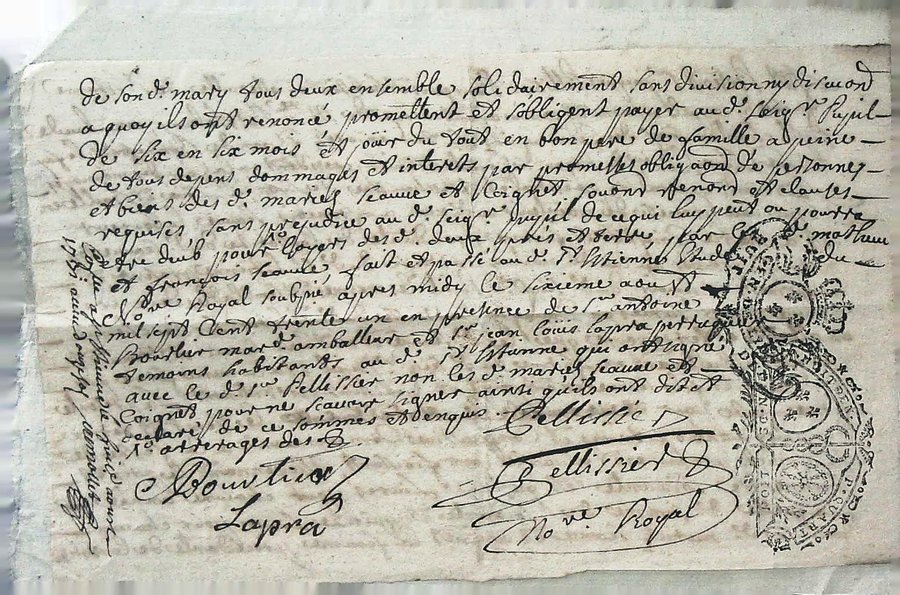 de son d. mary tous deux ensemble solidairement sans division ny discuond
a quoy ils ont renoncé promettent et sobligent payer au d. seigr. pupil
de six en six mois et par du tout en bon pere de famille a peine
de tous depens dommages et interets par promesses obligaond de personnes
et biens des d. mariés seauve et Coignet souond renond et clauses
requises, sans prejudice au d. seigr. pupil de ce qui luy peut ou pourra
etre deub pour loyers des d. deux prés et terre par le d. mathieu
et françois seauve fait et passé au d. St Etienne Etude du
No.re Royal soubné apres midy le sixieme aoust
mil sept Cent trente un en presence de sr. antoine
Bourlier mard. amballeur et sr. jean louis lapra perruquier
temoins habitants au d. St Etienne qui ont signé
avec le d. sr. Pellissier non les d. mariés seauve et
Coignet pour ne scavoir signer ainsi qu'ils ont dit et
declaré de ce sommés et enquis.
arrerages des
Pellissier
Bourlier
Pellissier
Lapra
No.re Royal